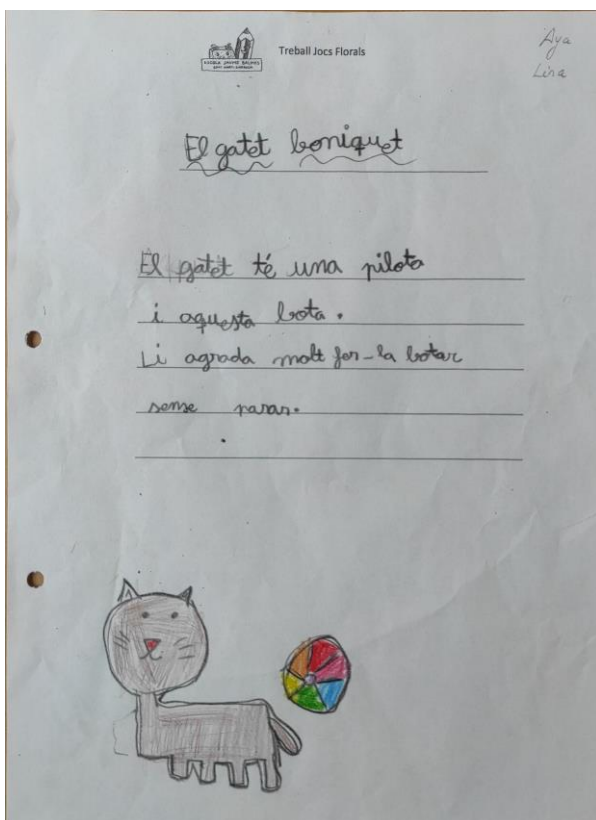 Treball Jocs Florals
Aya
Lina
El gatet boniquet
El gatet té una pilota
i aquesta bota.
Li agrada molt fer-la botar
sense parar.